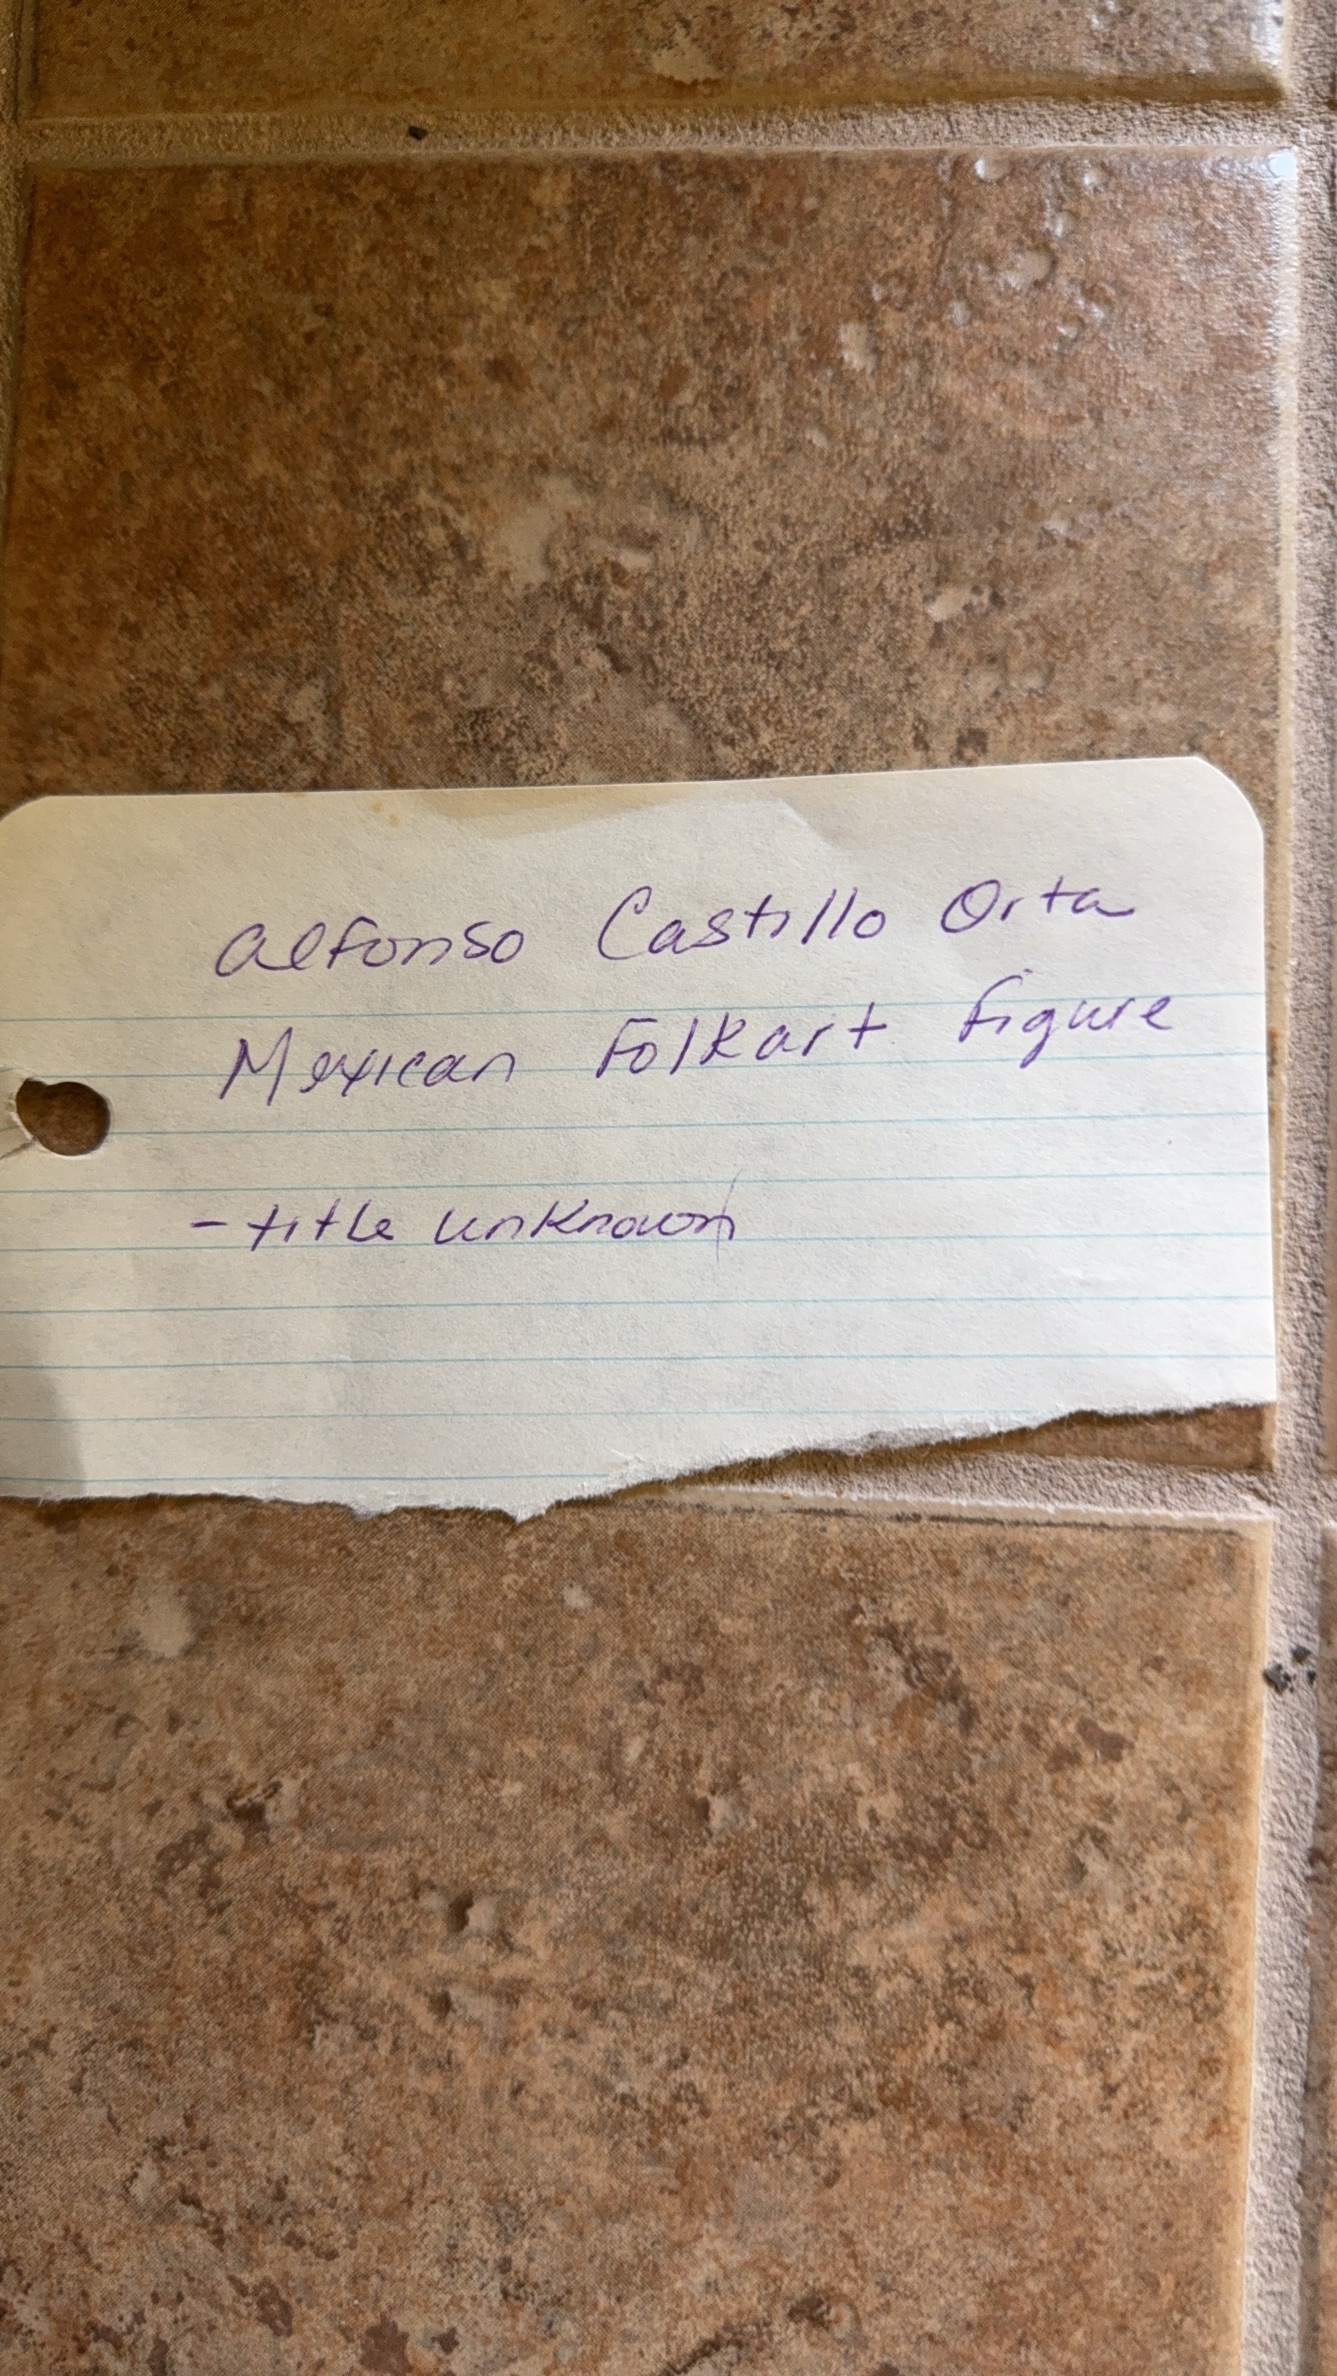 Alfonso Castillo Orta
Mexican Folkart Figure
- title unknown